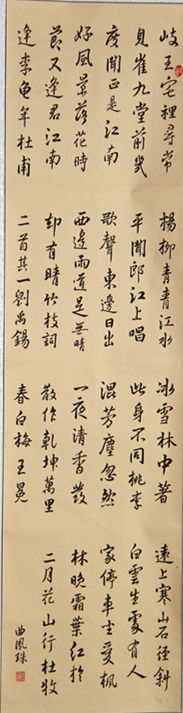 岐王宅裡尋常
見崔九堂前幾
度聞正是江南
好風景落花時
節又逢君江南
逢李龜年杜甫
楊柳青青江水
平聞郎江上唱
歌聲東邊日出
西邊雨道是無晴
却有晴竹枝詞
二首其一劉禹錫
冰雪林中著
此身不同桃李
混芳塵忽然
一夜清香發
散作乾坤萬里
春白梅王冕
遠上寒山石徑斜
白雲生處有人
家停車坐愛楓
林晚霜葉紅於
二月花山行杜牧
曲鳳珠